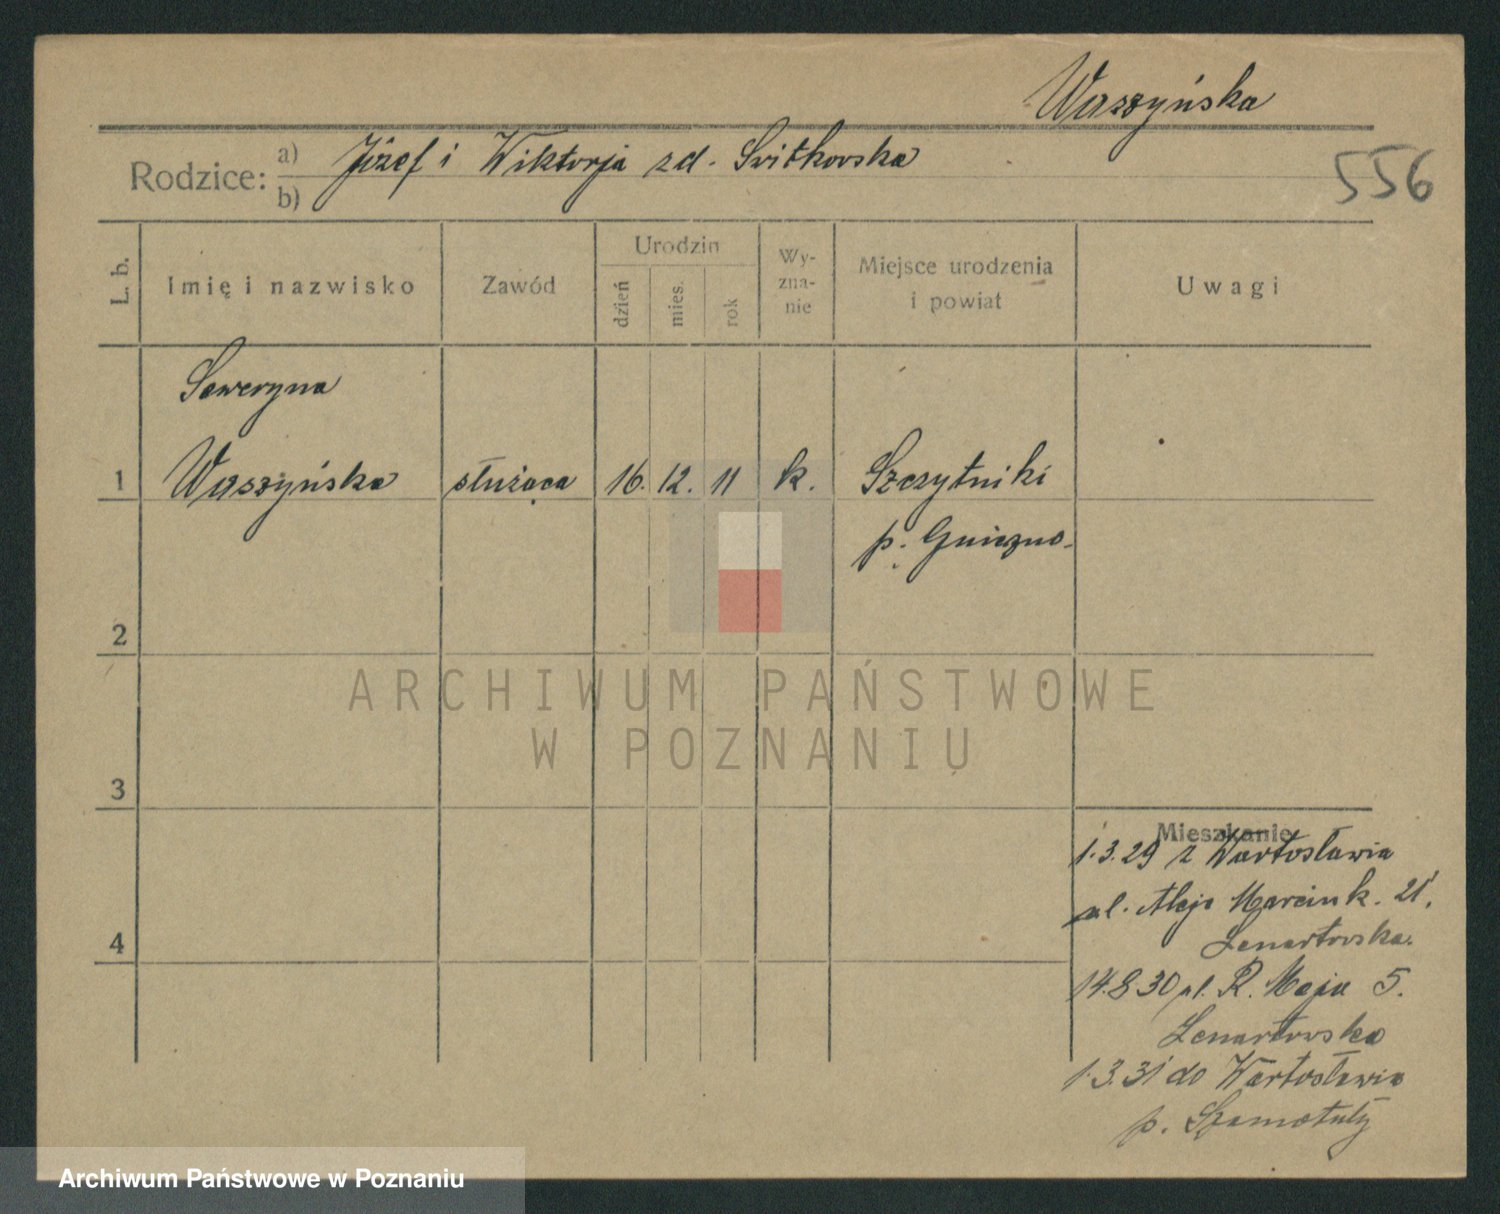 Waszyńska
Rodzice: a) Józef i Wiktorja zd. Svitkovska
b)
556
L. b.
Imię i nazwisko
Zawód
Urodzin
dzień
mies.
rok
Wy-
zna-
nie
Miejsce urodzenia
i powiat
Uwagi
Seweryna
1 Waszyńska służąca 16. 12. 11 k. Szczytniki
p. Gniezno
2
3
4
Mieszkanie
1.3.29 z Wartosławia
ul. Aleje Marcink. 21,
Lenartovska.
14.8.30 pl. R. Maja 5.
Lenartowska
1.3.31 do Wartosławia
p. Szamotuły
ARCHIWUM PAŃSTWOWE
W POZNANIU
Archiwum Państwowe w Poznaniu